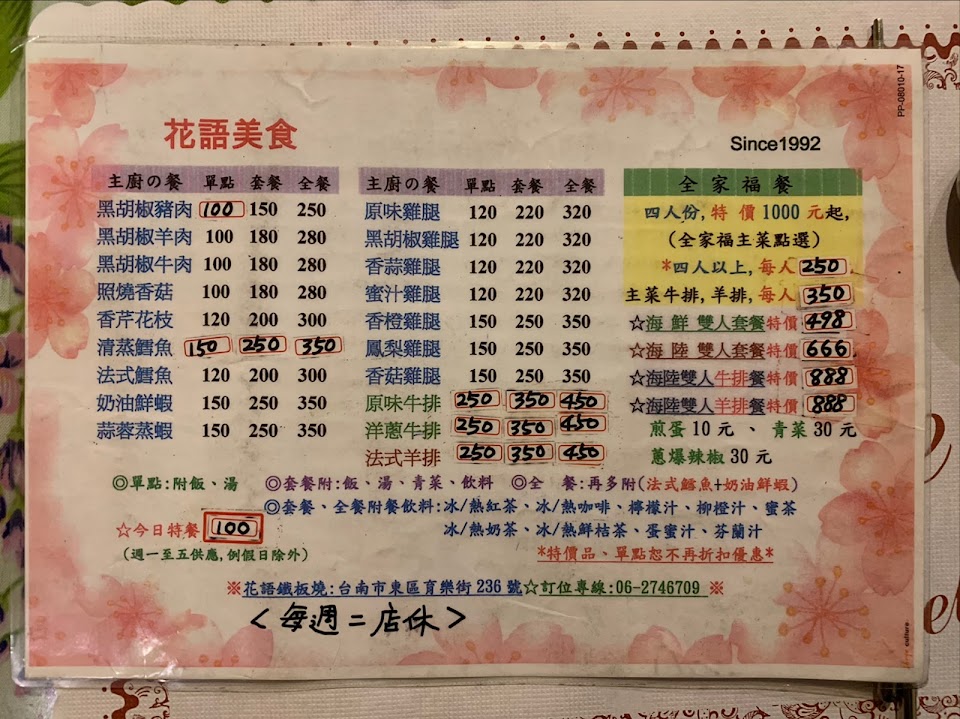 PP-08010-17
花語美食
Since1992
主廚の餐 單點 套餐 全餐
黑胡椒豬肉 100 150 250
黑胡椒羊肉 100 180 280
黑胡椒牛肉 100 180 280
照燒香菇 100 180 280
香芹花枝 120 200 300
清蒸鱈魚 150 250 350
法式鱈魚 120 200 300
奶油鮮蝦 150 250 350
蒜蓉蒸蝦 150 250 350
主廚の餐 單點 套餐 全餐
原味雞腿 120 220 320
黑胡椒雞腿 120 220 320
香蒜雞腿 120 220 320
蜜汁雞腿 120 220 320
香橙雞腿 150 250 350
鳳梨雞腿 150 250 350
香菇雞腿 150 250 350
原味牛排 250 350 450
洋蔥牛排 250 350 450
法式羊排 250 350 450
全家福餐
四人份,特價1000元起,
(全家福主菜點選)
*四人以上,每人250
主菜牛排,羊排,每人350
☆海鮮雙人套餐特價498
☆海陸雙人套餐特價666
☆海陸雙人牛排餐特價888
☆海陸雙人羊排餐特價888
煎蛋10元、青菜30元
蔥爆辣椒30元
◎單點:附飯、湯 ◎套餐附:飯、湯、青菜、飲料 ◎全 餐:再多附(法式鱈魚+奶油鮮蝦)
◎套餐、全餐附餐飲料:冰/熱紅茶、冰/熱咖啡、檸檬汁、柳橙汁、蜜茶
冰/熱奶茶、冰/熱鮮桔茶、蛋蜜汁、芬蘭汁
☆今日特餐 100
(週一至五供應,例假日除外)
*特價品、單點恕不再折扣優惠*
※花語鐵板燒:台南市東區育樂街236號☆訂位專線:06-2746709 ※
<每週二店休>
culture